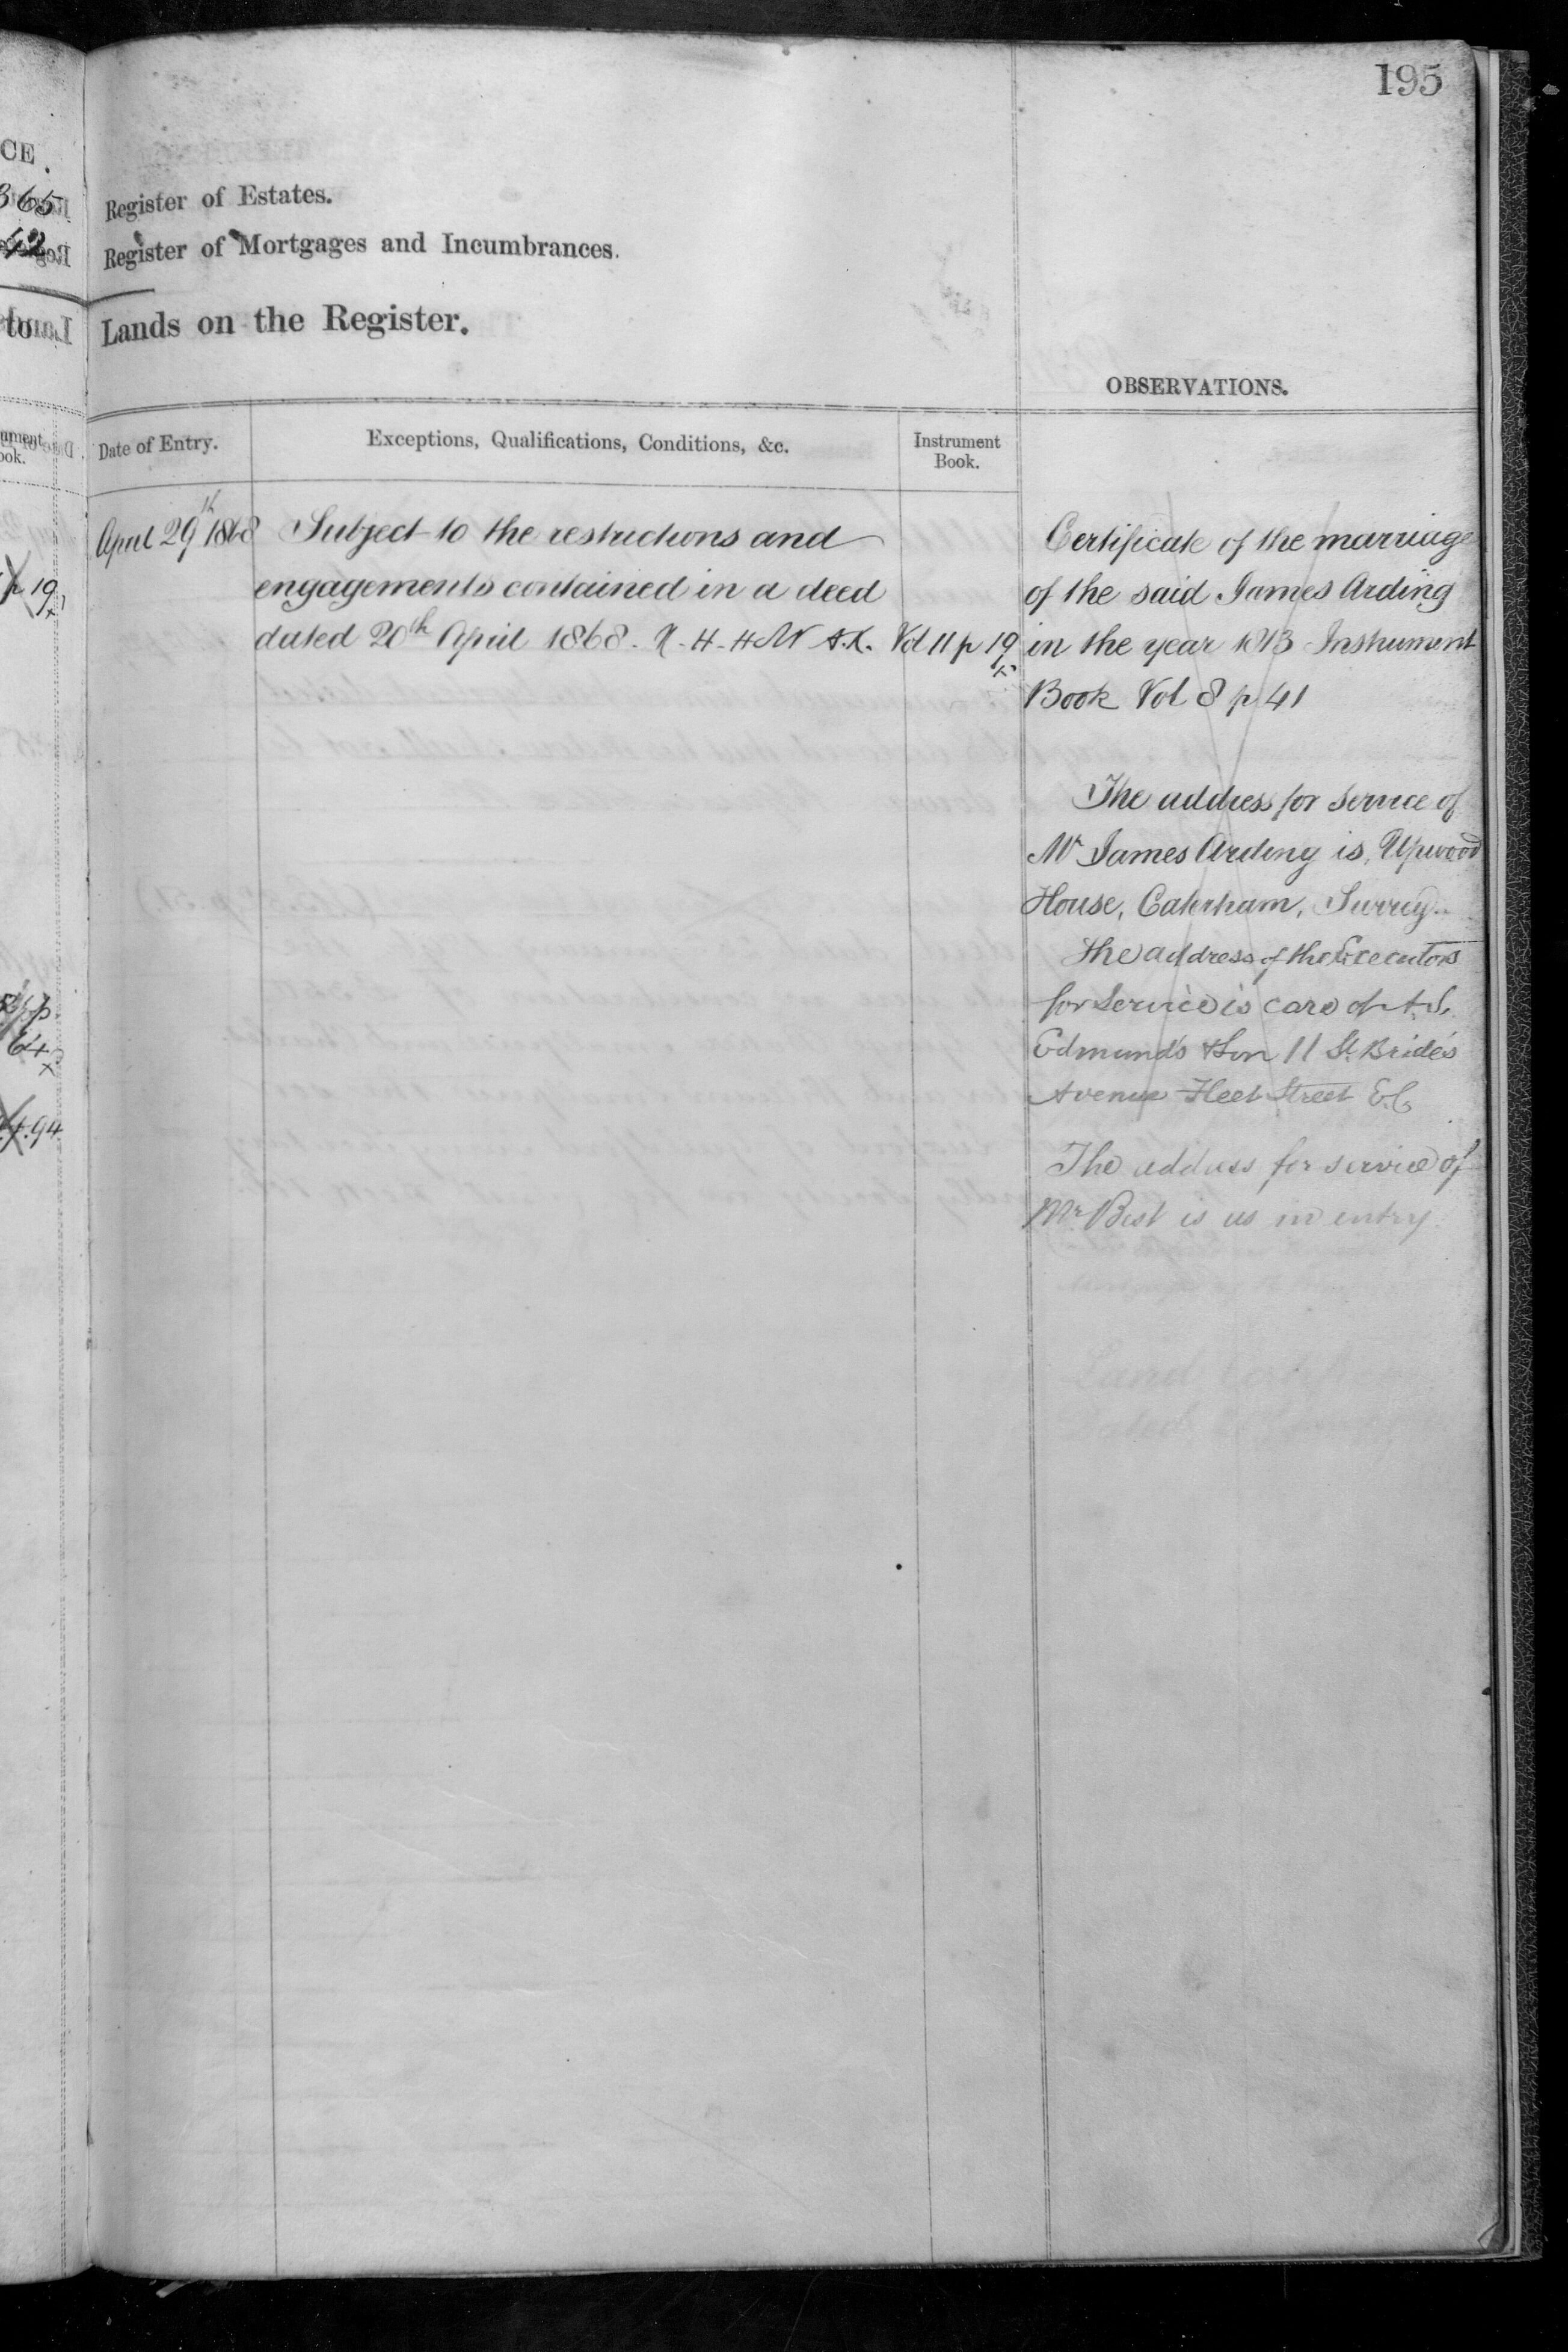 195
CE.
365
42
Register of Estates.
Register of Mortgages and Incumbrances.
to
Lands on the Register.
OBSERVATIONS.
ument
ook.
Date of Entry.
Exceptions, Qualifications, Conditions, &c.
Instrument
Book.
April 29th 1868
Subject to the restrictions and
engagements contained in a deed
dated 20th April 1868.
Vol 11 p 19
p 19
64
94
Certificate of the marriage
of the said James Arding
in the year 1813 Instrument
Book Vol 8 p 41
The address for service of
Mr James Arding is, Upwood
House, Caterham, Surrey.
the address of the Executors
for Service is care of A. S.
Edmunds & Son 11 St. Bride's
Avenue Fleet Street E.C.
The address for service of
Mr Best is as in entry